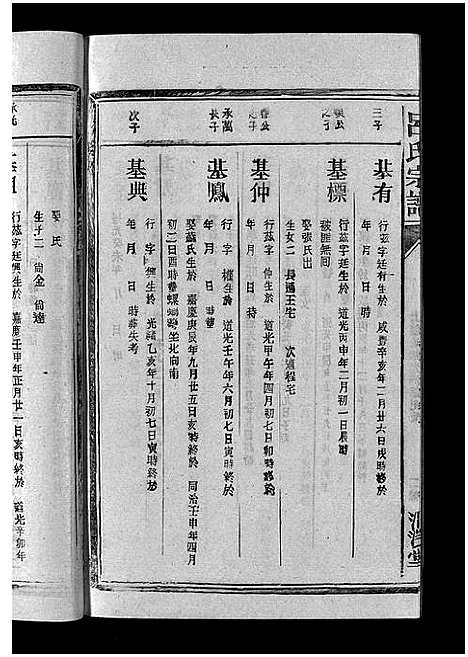 呂氏宗譜
三子
基有
行茲字廷有生於 咸豐辛亥年二月廿六日戌時終於
年 月 日 時
之子
基標
行茲字廷生於 道光丙申年二月初一日辰時
被匪無間
娶張氏出
生女二 長適王宅 次適程宅
基仲
行茲字 仲生於 道光甲午年四月初七日卯時終於
年 月 日 時
永萬
長子
基鳳
行 字 生於 道光壬午年六月初七日寅時終於
年 月 日 時
娶蘇氏生於 嘉慶庚辰年九月廿五日亥時終於 同治壬申年四月
初二日酉時 坐北向南
次子
基典
行 字 興生於 光緒乙亥年十月初七日寅時終於
年 月 日 時葬失考
行茲字廷 生於 嘉慶壬申年正月廿一日亥時終於 道光辛卯年
娶 氏
生子二 尚金 尚達